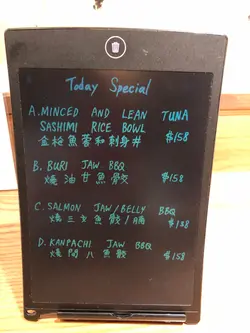 Today Special
A. MINCED AND LEAN TUNA
SASHIMI RICE BOWL
金槍魚蓉和刺身丼 $158
B. BURI JAW BBQ
燒油甘魚鮫 $158
C. SALMON JAW/BELLY BBQ
燒三文魚鮫/腩 $138
D. KANPACHI JAW BBQ
燒間八魚鮫 $158